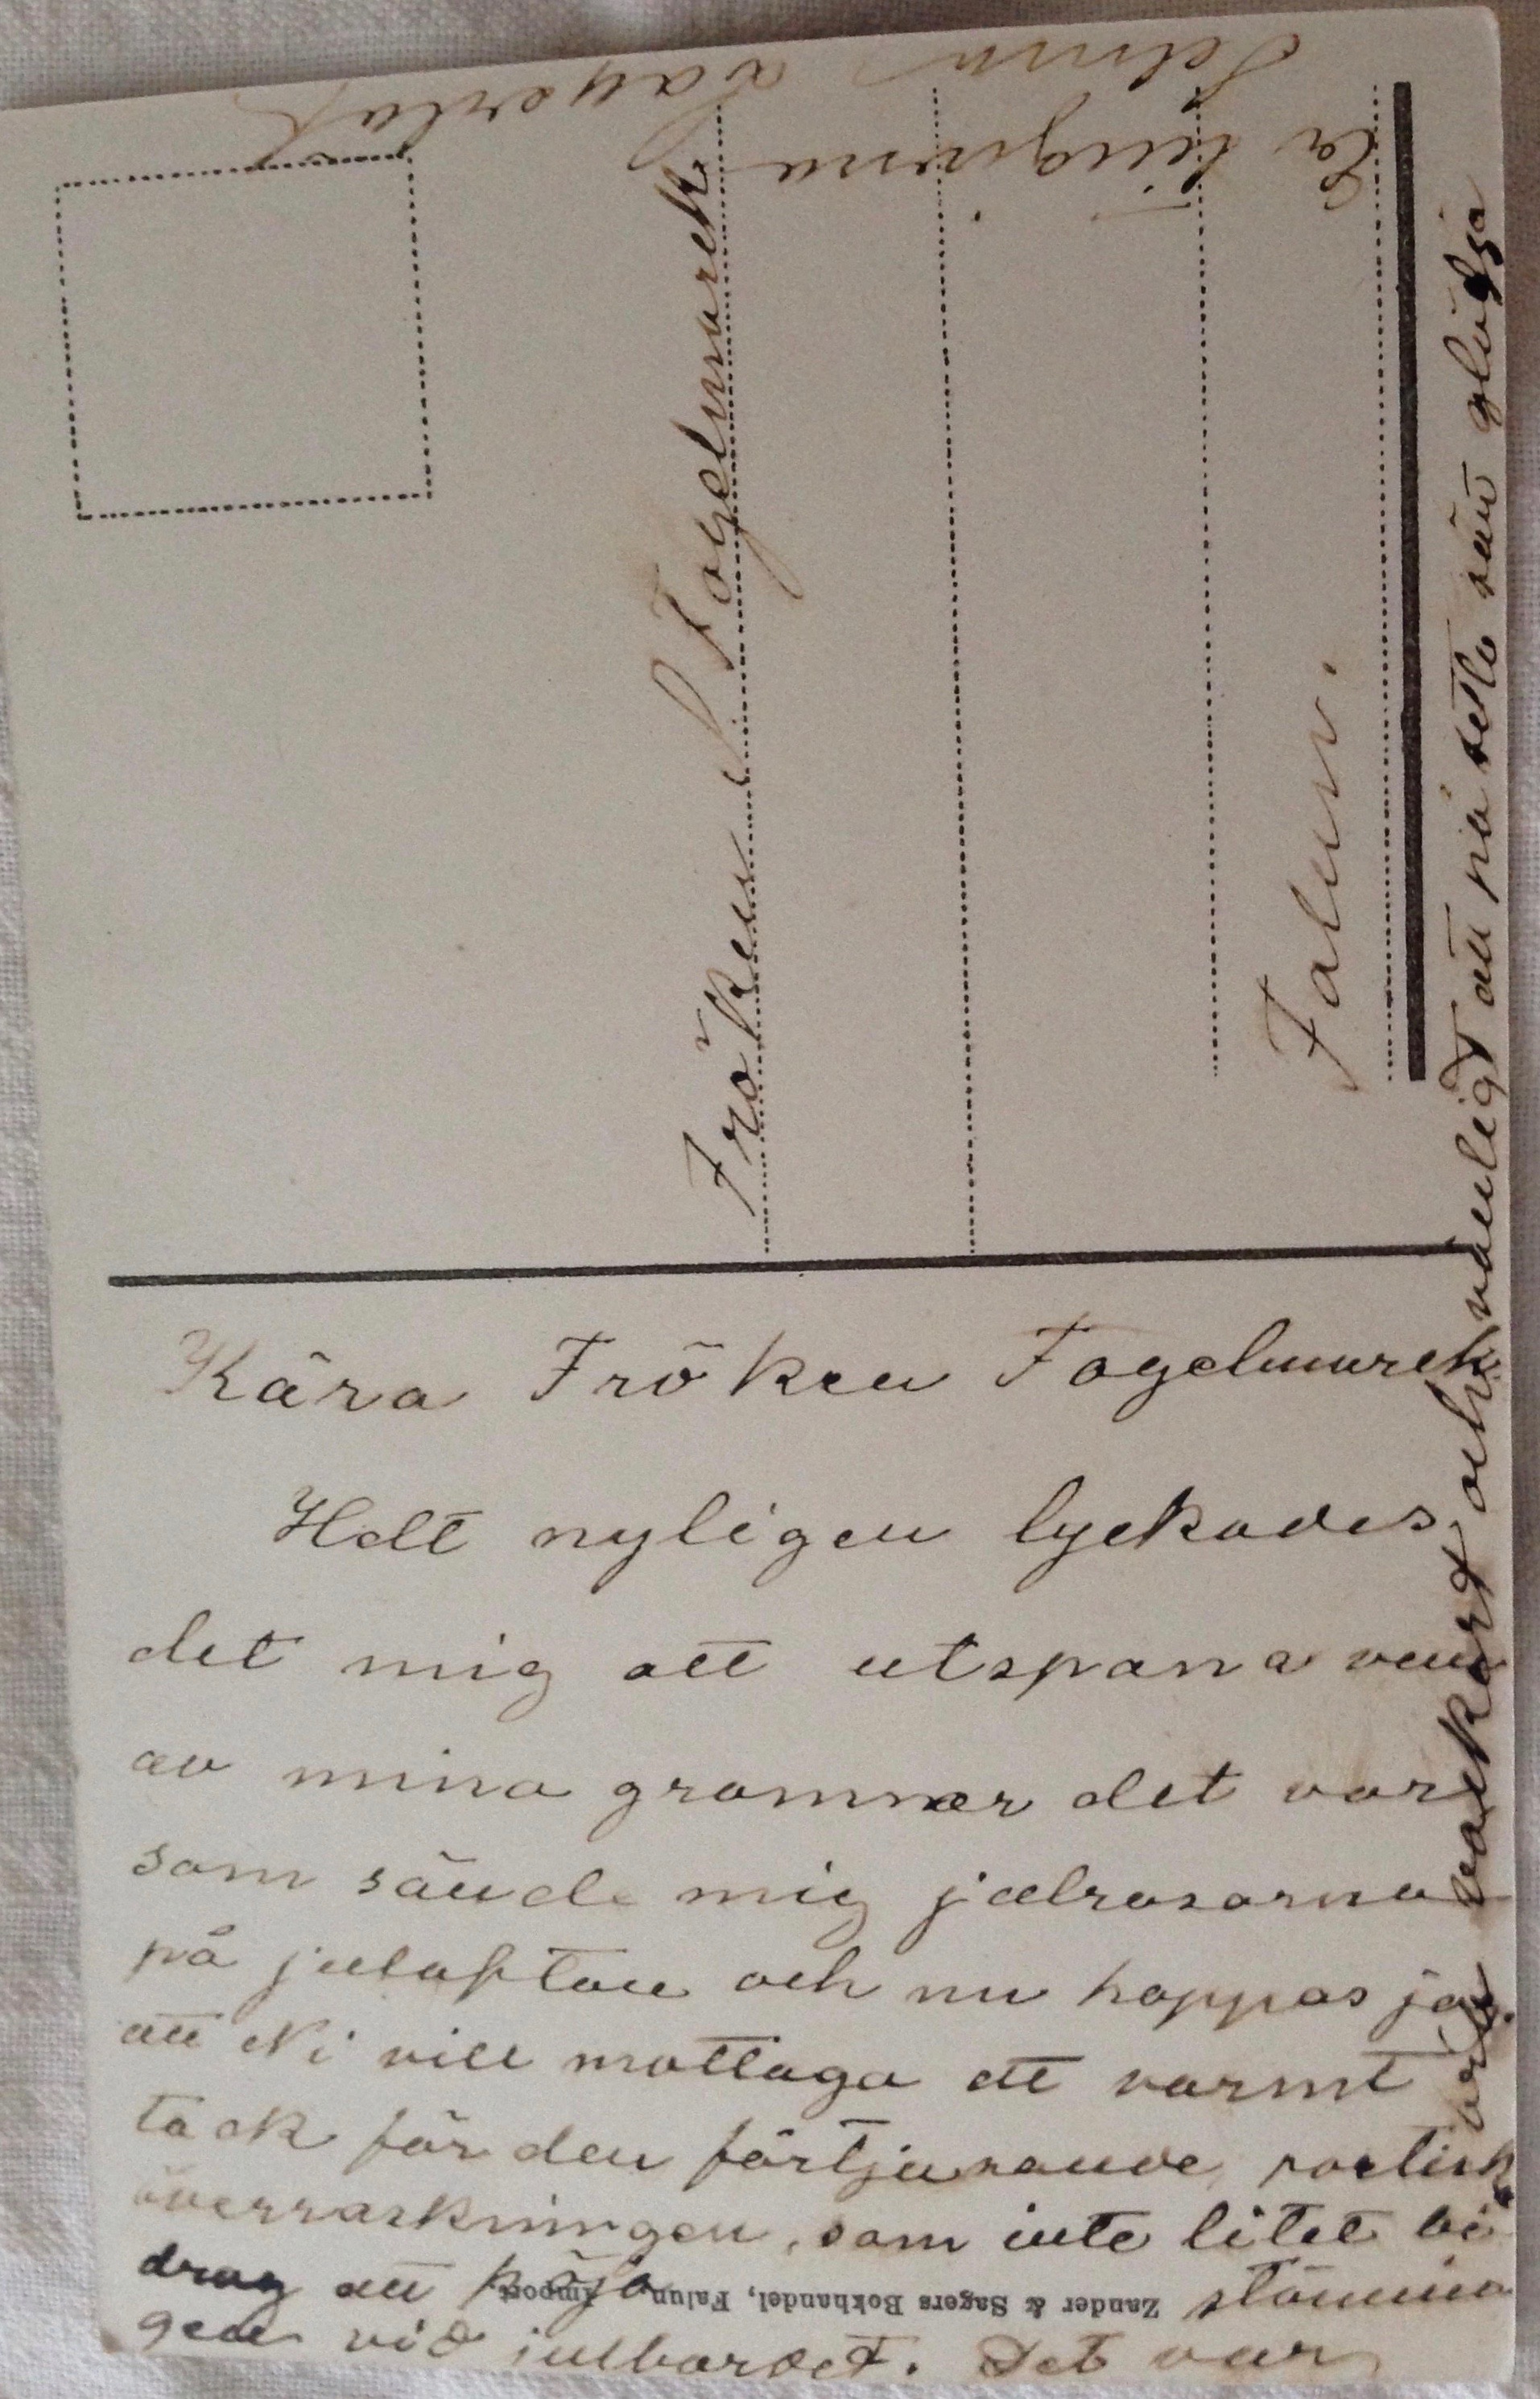 Kära Fröken Fogelmarck
Helt nyligen lyckades
det mig att utspana vem
av mina grannar det var
som sände mig julrosorna
på julafton och nu hoppas jag
att Ni vill mottaga ett varmt
tack för den förtjusande
överraskningen, som inte litet bi
drog att höja stämnin
gen vid julbordet. Det var
vackert och vänligt att på detta sätt glädja
Er tillgivna
Selma Lagerlöf
Fröken Fogelmarck
Falun.
Zander & Sagers Bokhandel, Falun, Import.